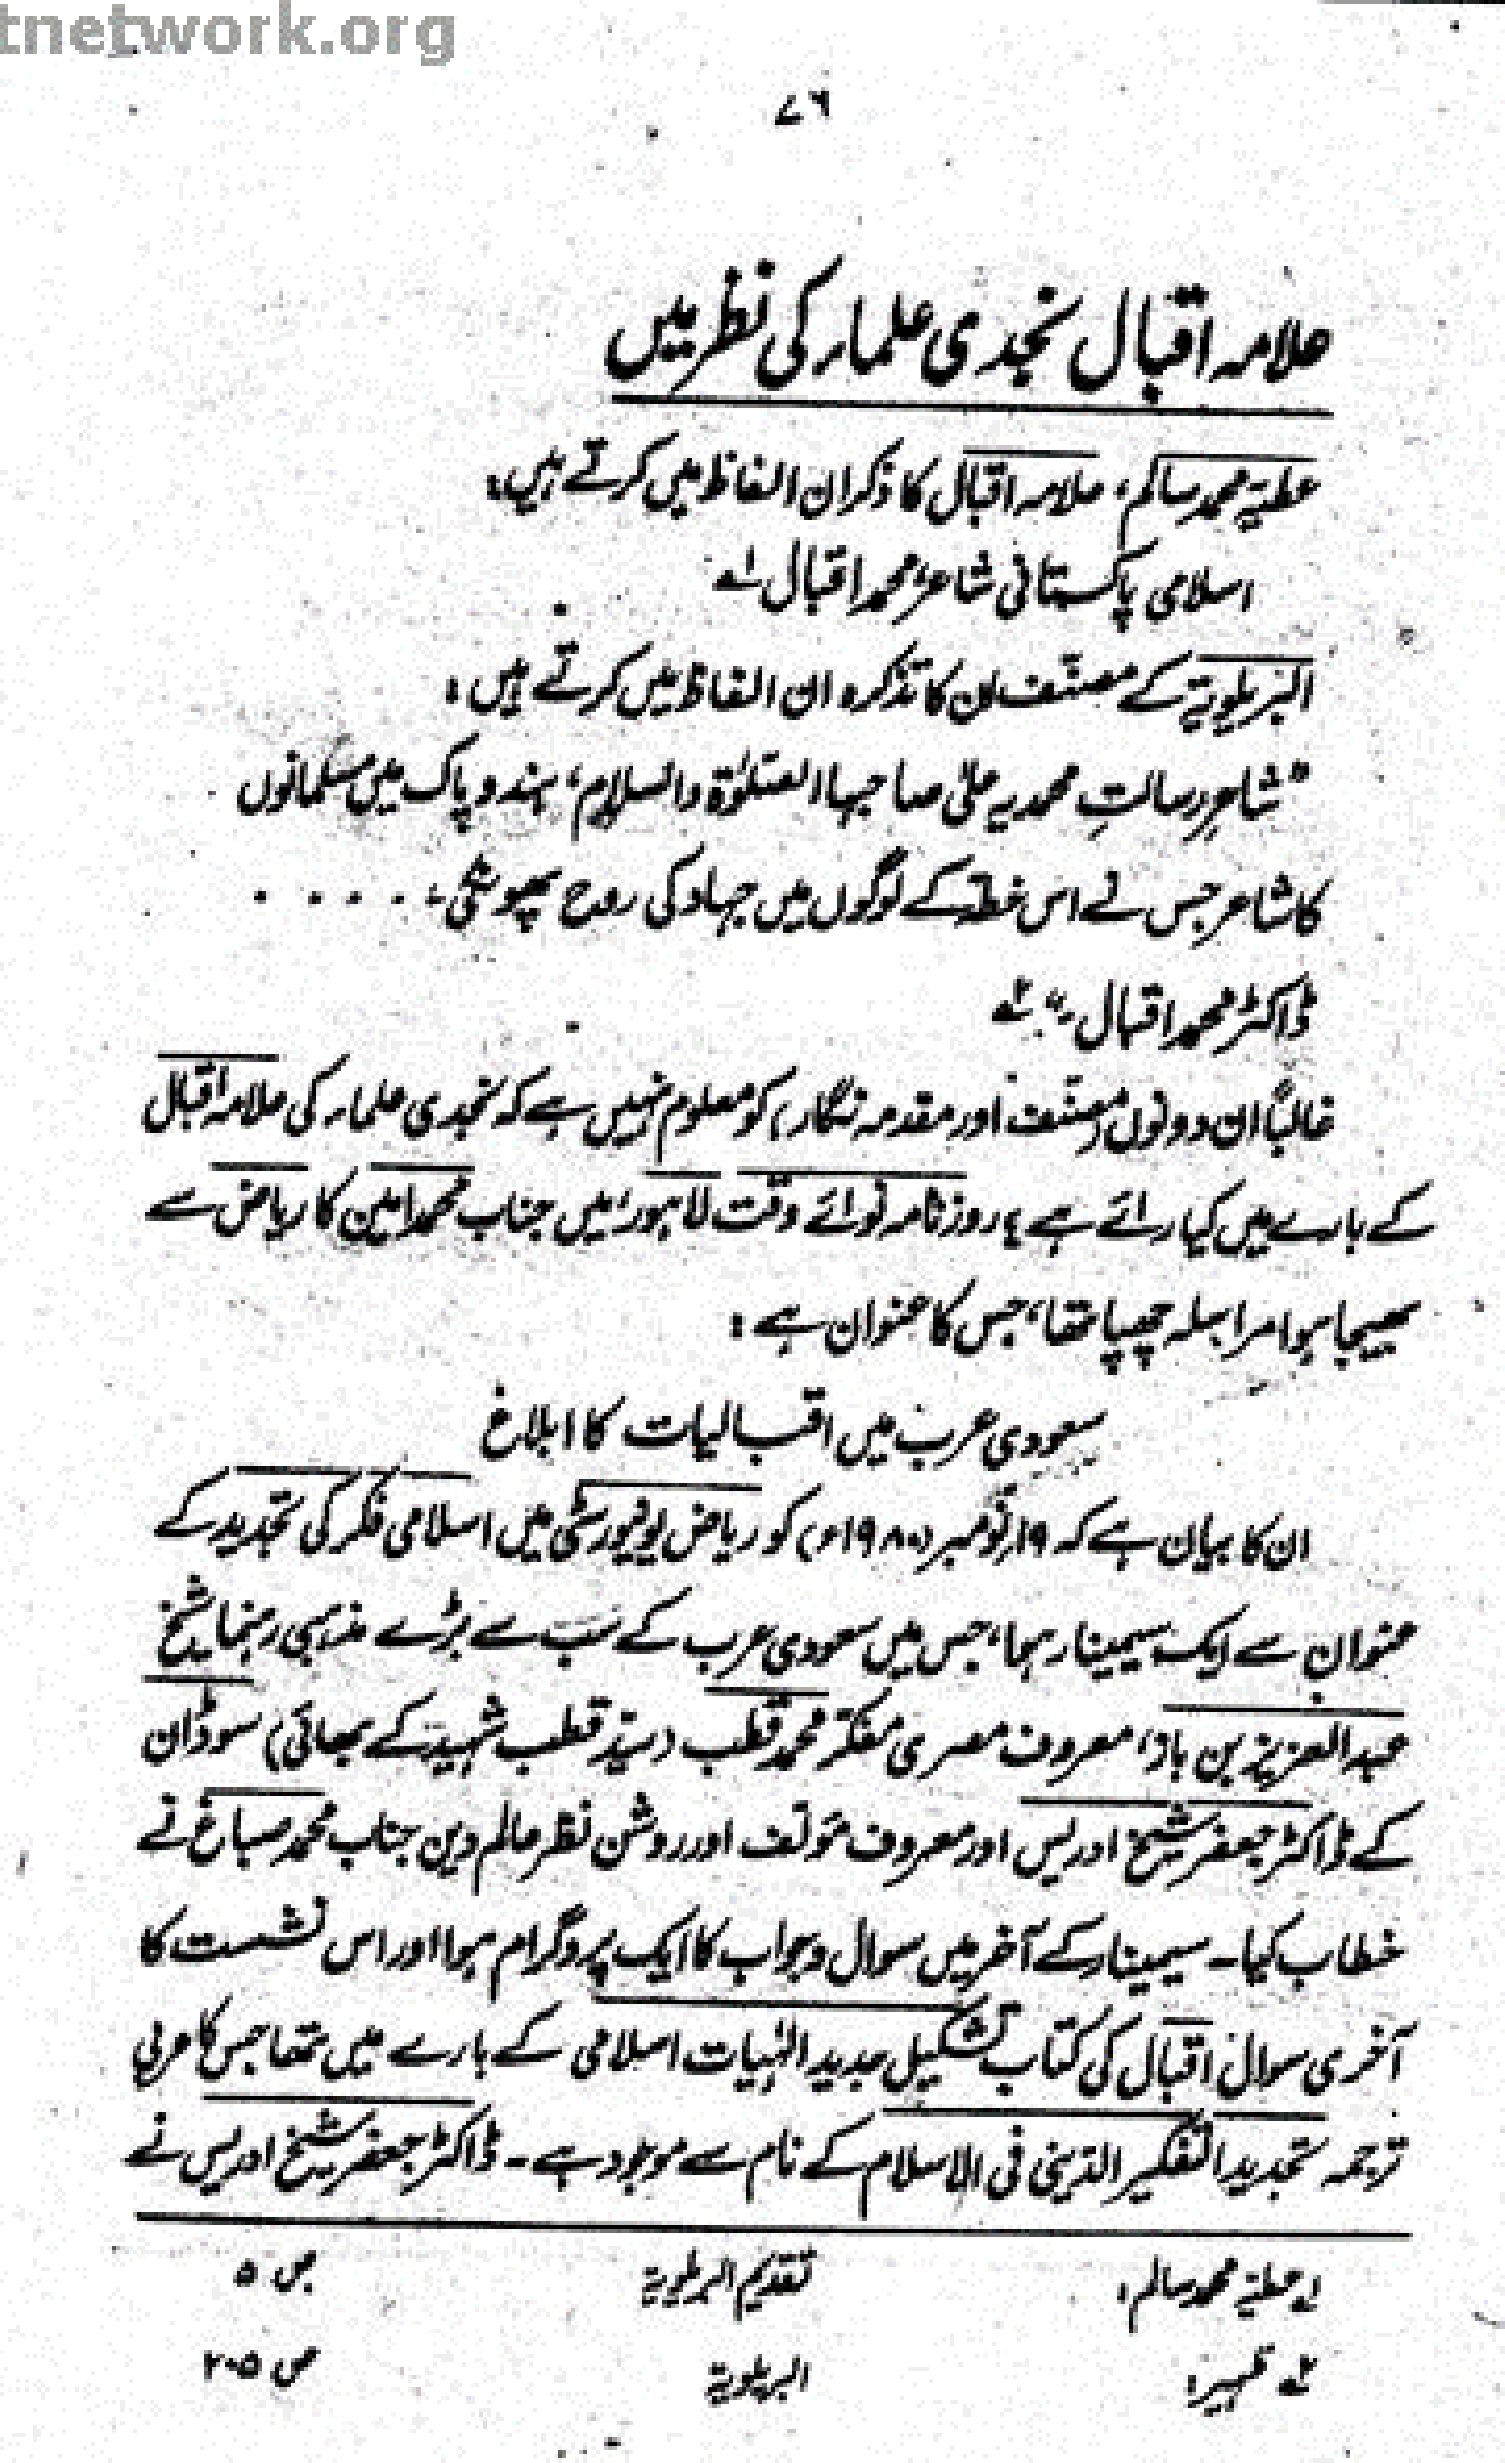 tnetwork.org
۷۶
علامہ اقبال نجدی علماء کی نظر میں
عطیہ محمد سالم، علامہ اقبال کا ذکر ان الفاظ میں کرتے ہیں:
اسلامی پاکستانی شاعر، محمد اقبال لے
البریلویۃ کے مصنف ان کا تذکرہ ان الفاظ میں کرتے ہیں:
"شاعرِ رسالتِ محمدیہ علیٰ صاحبہا الصلوٰۃ والسلام، ہند و پاک میں مسلمانوں
کا شاعر جس نے اس خطہ کے لوگوں میں جہاد کی روح پھونکی۔ . . . . .
ڈاکٹر محمد اقبال۔" ٢ے
غالباً ان دونوں (مصنف اور مقدمہ نگار) کو معلوم نہیں ہے کہ نجدی علماء کی علامہ اقبال
کے بارے میں کیا رائے ہے، روزنامہ نوائے وقت لاہور، میں جناب محمد امین کا ریاض سے
بھیجا ہوا مراسلہ چھپا تھا، جس کا عنوان ہے:
سعودی عرب میں اقبالیات کا ابلاغ
ان کا بیان ہے کہ ۱۹ر نومبر (۱۹۸۰ء) کو ریاض یونیورسٹی میں اسلامی فکر کی تجدید کے
عنوان سے ایک سیمینار ہوا، جس میں سعودی عرب کے سب سے بڑے مذہبی رہنما شیخ
عبدالعزیز بن باز، معروف مصری مفکر محمد قطب (سید قطب شہید کے بھائی) سوڈان
کے ڈاکٹر جعفر شیخ ادریس اور معروف مؤلف اور روشن نظر عالم دین جناب محمد صباغ نے
خطاب کیا۔ سیمینار کے آخر میں سوال و جواب کا ایک پروگرام ہوا اور اس نشست کا
آخری سوال اقبال کی کتاب تشکیل جدید الٰہیات اسلامی کے بارے میں تھا جس کا عربی
ترجمہ تجدید التفکیر الدینی فی الاسلام کے نام سے موجود ہے۔ ڈاکٹر جعفر شیخ ادریس نے
لے عطیہ محمد سالم: تقدیم البریلویۃ ص ۵
٢ے ظہیر: البریلویۃ ص ۲۰۵